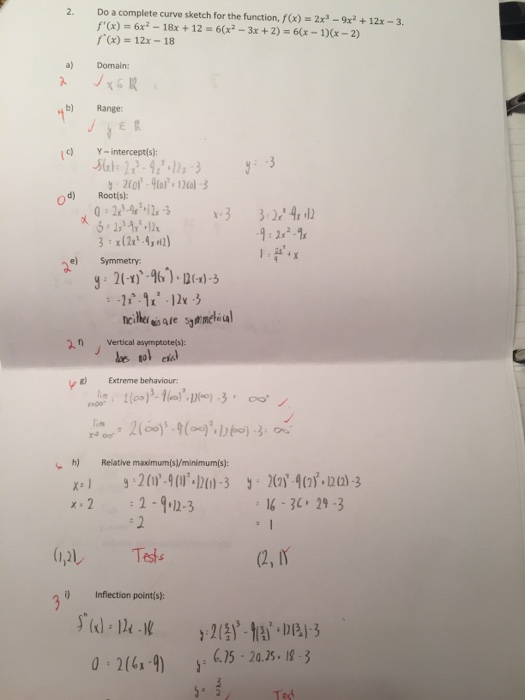 2. Do a complete curve sketch for the function, f(x) = 2x³ – 9x² + 12x – 3.
f'(x) = 6x² – 18x + 12 = 6(x² – 3x + 2) = 6(x – 1)(x – 2)
f"(x) = 12x – 18
a) Domain:
2 ✓ x ∈ ℝ
4 b) Range:
✓ y ∈ ℝ
1 c) Y – intercept(s):
y = 2(0)³ - 9(0)² + 12(0) - 3
y = -3
0 d) Root(s):
0 = 2x³ - 9x² + 12x - 3
3 = 2x³ - 9x² + 12x
3 = x(2x² - 9x + 12)
x = 3
3 = 2x² - 9x + 12
-9 = 2x² - 9x
2 e) Symmetry:
y = 2(-x)³ - 9(x²) + 12(-x) - 3
= -2x³ - 9x² - 12x - 3
neither are symmetrical
2 f) Vertical asymptote(s):
does not exist
g) Extreme behaviour:
lim = 2(∞)³ - 9(∞)² + 12(∞) - 3 = ∞ ✓
lim = 2(∞)³ - 9(∞)² + 12(∞) - 3 = ∞ ✓
h) Relative maximum(s)/minimum(s):
x = 1 y = 2(1)³ - 9(1)² + 12(1) - 3 y = 2(2)³ - 9(2)² + 12(2) - 3
x = 2 = 2 - 9 + 12 - 3 = 16 - 36 + 24 - 3
= 2 = 1
(1,2) Tests (2,1)
3 i) Inflection point(s):
f"(x) = 12x - 18 y = 2(3/2)³ - 9(3/2)² + 12(3/2) - 3
0 = 2(6x - 9) y = 6.75 - 20.25 + 18 - 3
y = 3/2 Test